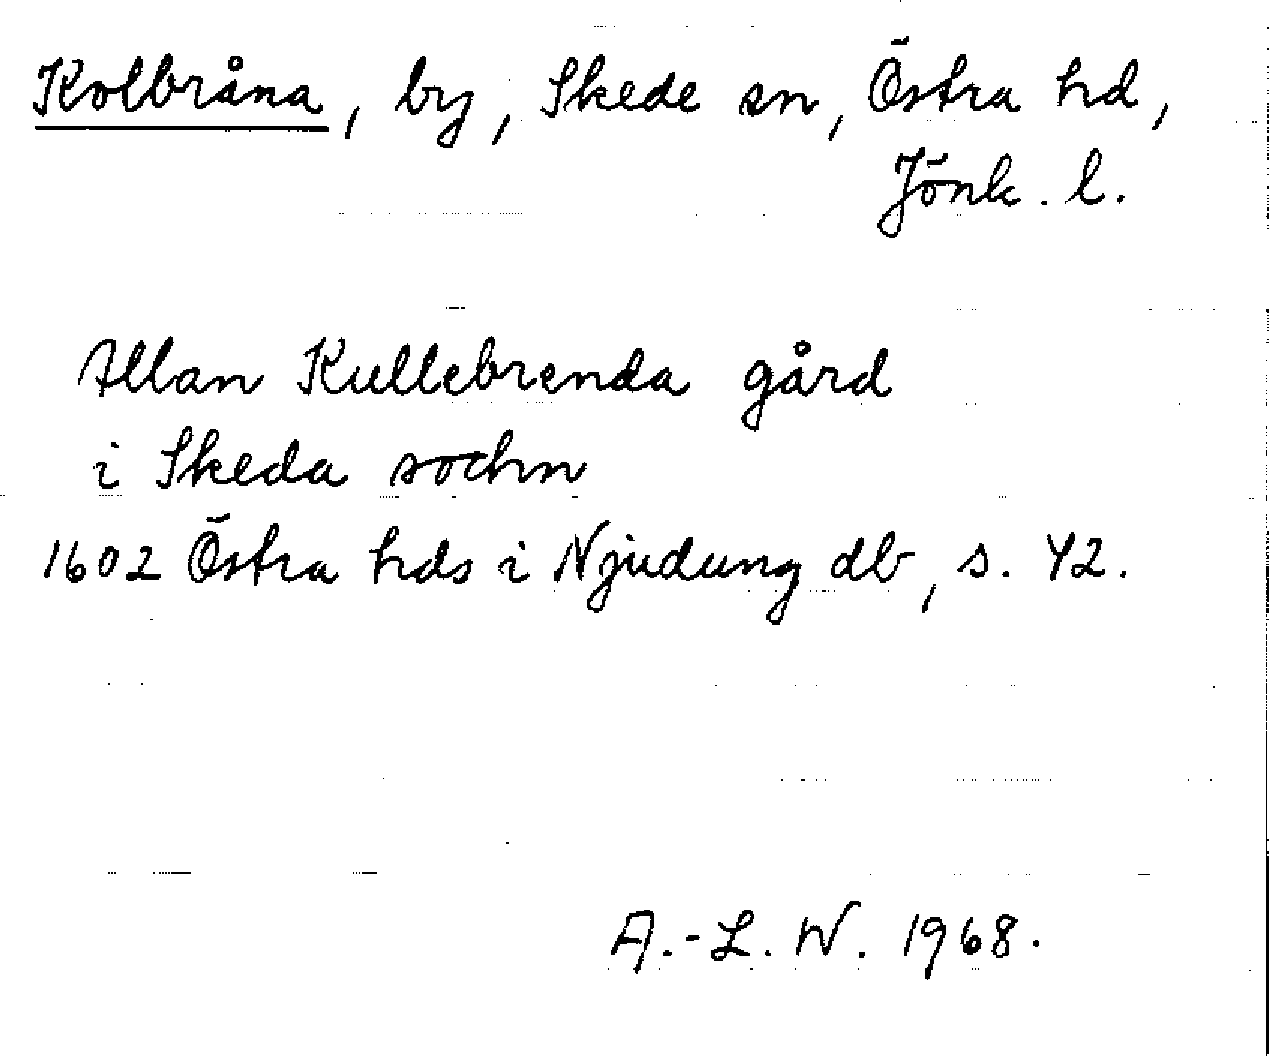 Kolbråna, by, Skede sn, Östra hd,
Jönk. l.
Allan Kullebrenda gård
i Skeda sochn
1602 Östra hds i Njudung db, s. 42.
A.-L. W. 1968.